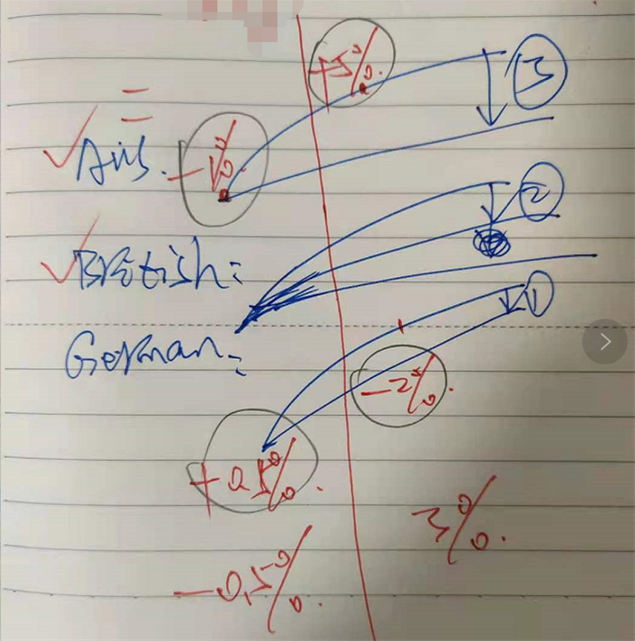 +5%
③
二
Aus. -1%
②
British:
①
German:
-2%.
+0.5%.
3%.
-0,5%.